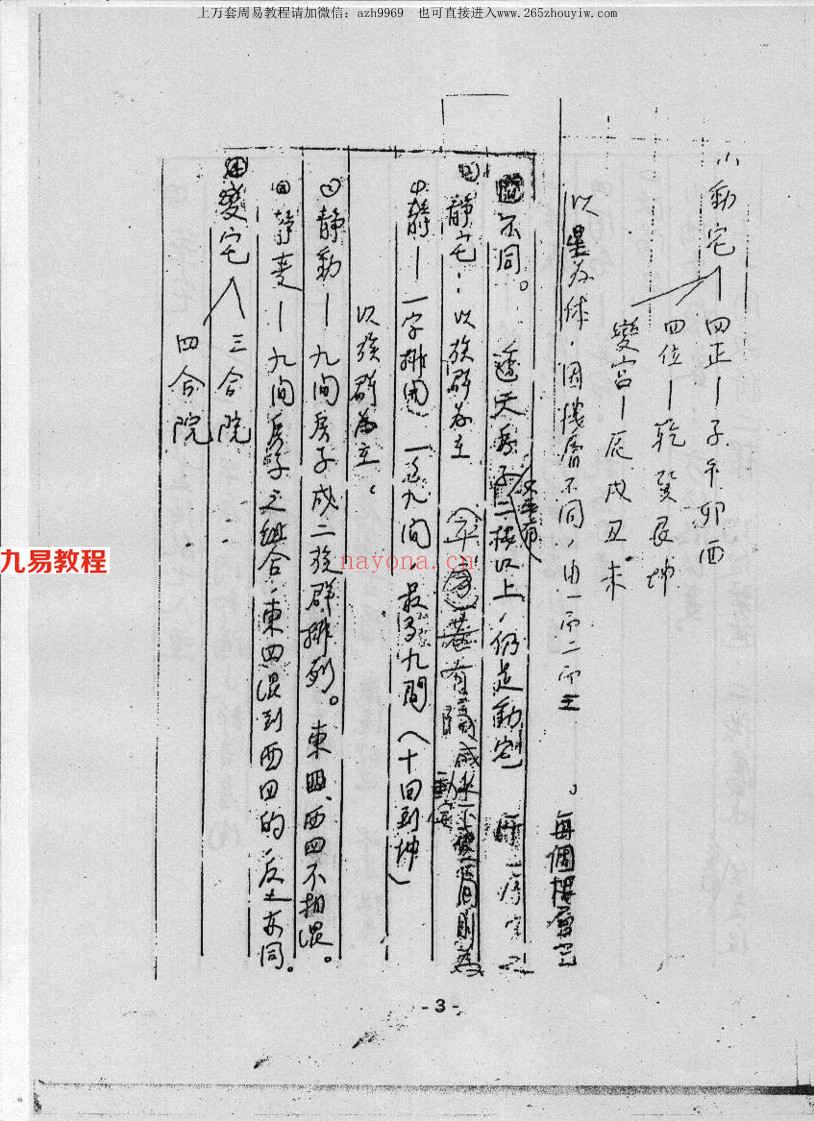 上万套周易教程请加微信：azh9969　也可直接进入www.265zhouyiw.com
小動宅－四正－子午卯酉
四位－乾癸艮坤
變宮－辰戌丑未
以星為体，因樓層不同，由一而二而三　。每個樓層它
不同。透天房子二樓以上，仍是動宅
靜宅：以族群為主（平房）若有隔
動宅
靜－一字排開，一戶九間，最多九間（十回到坤）
以族群為主。
靜動－九间房子成二族群排列。東四、西四不相混。
靜变－九间房子之组合，東四混到西四的，反之亦同。
變宅
三合院
四合院
九易教程
nayona.cn
- 3 -